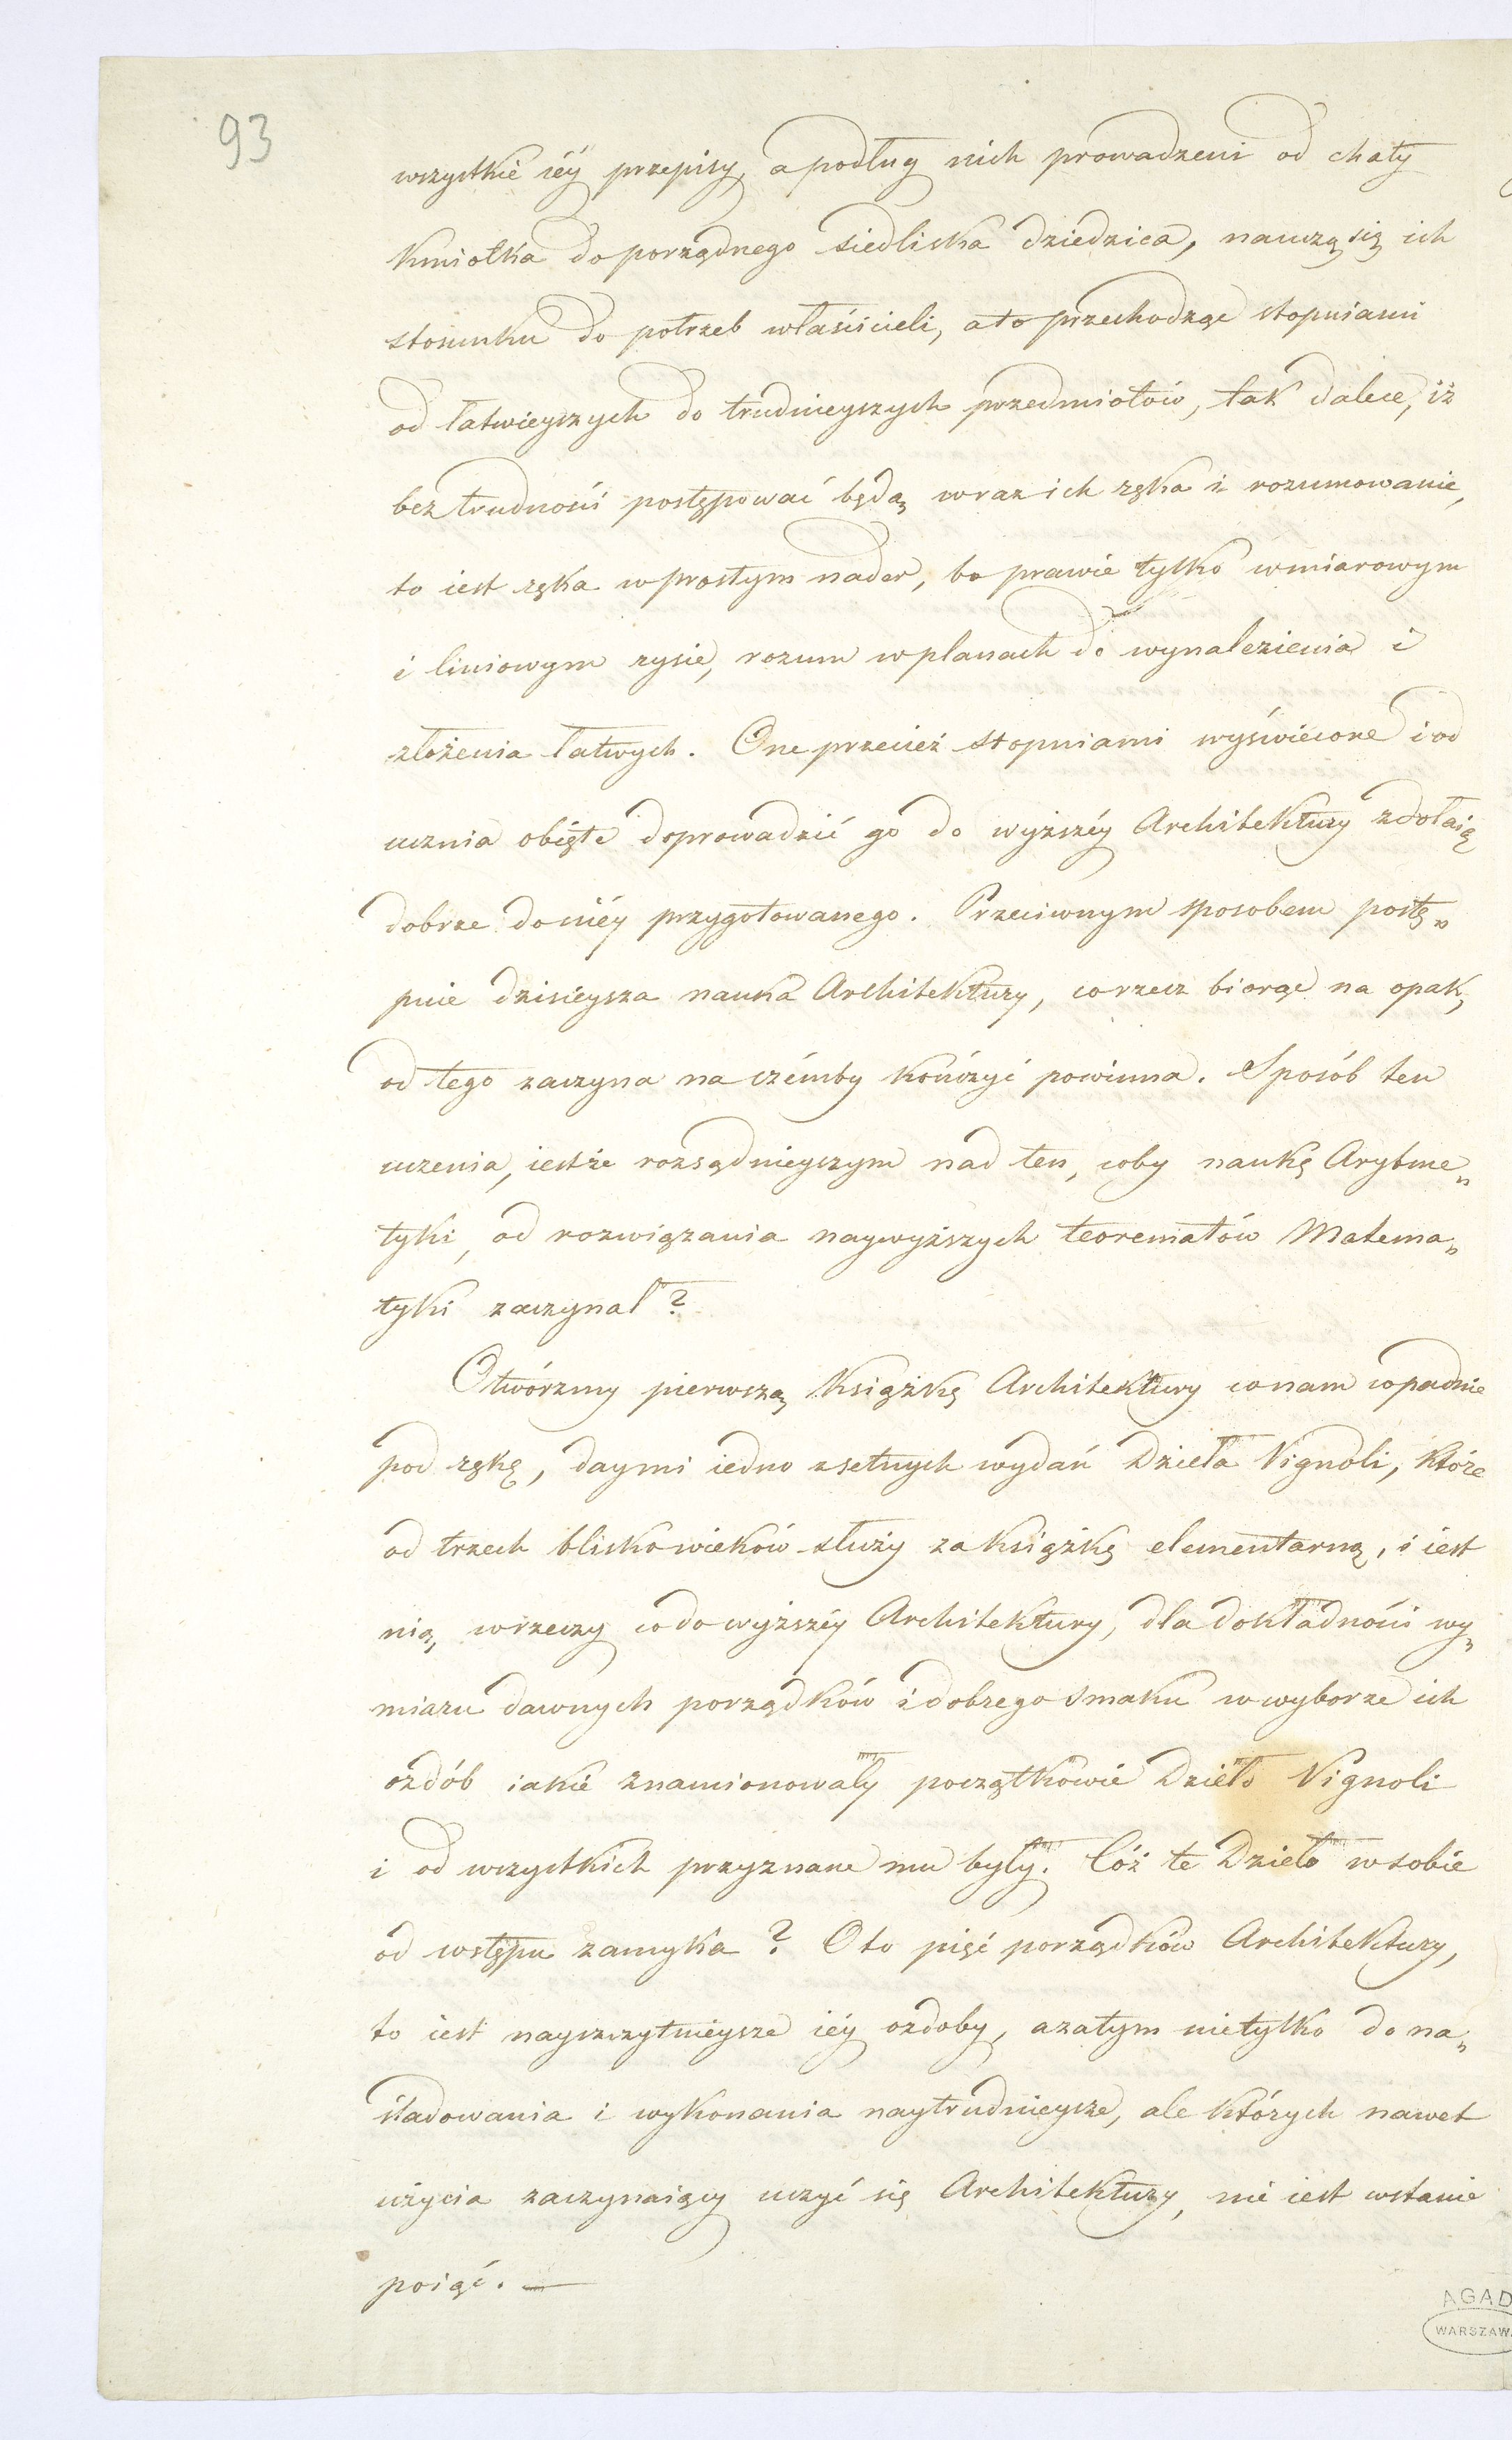 93
wszystkie iéy przepisy, a podług nich prowadzeni od chaty
kmiotka do porządnego siedliska dziedzica, nauczą się ich
stosunku do potrzeb właścicieli, a to przechodząc stopniami
od łatwieyszych do trudnieyszych przedmiotów, tak dalece, iż
bez trudności postępować będą wraz ich ręka i rozumowanie,
to iest ręka w prostym nader, bo prawie tylko wmiarowym
i liniowym rysie, rozum w planach do wynalezienia i
złożenia łatwych. One przecież stopniami wyświecone i od
ucznia obięte doprowadzić go do wyższéy Architektury zdołaią
dobrze do niéy przygotowanego. Przeciwnym sposobem postę„
puie dzisieysza nauka Architektury, co rzecz biorąc na opak,
od tego zaczyna na czémby kończyć powinna. Sposób ten
uczenia, iestże rozsądnieyszym nad ten, coby naukę Arytme„
tyki, od rozwiązania naywyższych teorematów Matema„
tyki zaczynał?
Otwórzmy pierwszą książkę Architektury co nam wpadnie
pod rękę, daymi iedno z setnych wydań Dzieła Vignoli, które
od trzech blisko wieków służy za książkę elementarną, i iest
nią, w rzeczy co do wyższéy Architektury, dla dokładności wy„
miaru dawnych porządków i dobrego smaku w wyborze ich
ozdób iakie znamionowały początkowie Dzieło Vignoli
i od wszystkich przyznane mu były. Cóż te Dzieło w sobie
od wstępu zamyka? Oto pięć porządków Architektury,
to iest nayszczytnieysze iéy ozdoby, azatym nietylko do na„
śladowania i wykonania naytrudnieysze, ale których nawet
użycia zaczynaiący uczyć się Architektury, nie iest wstanie
poiąć. —
AGAD
WARSZAW